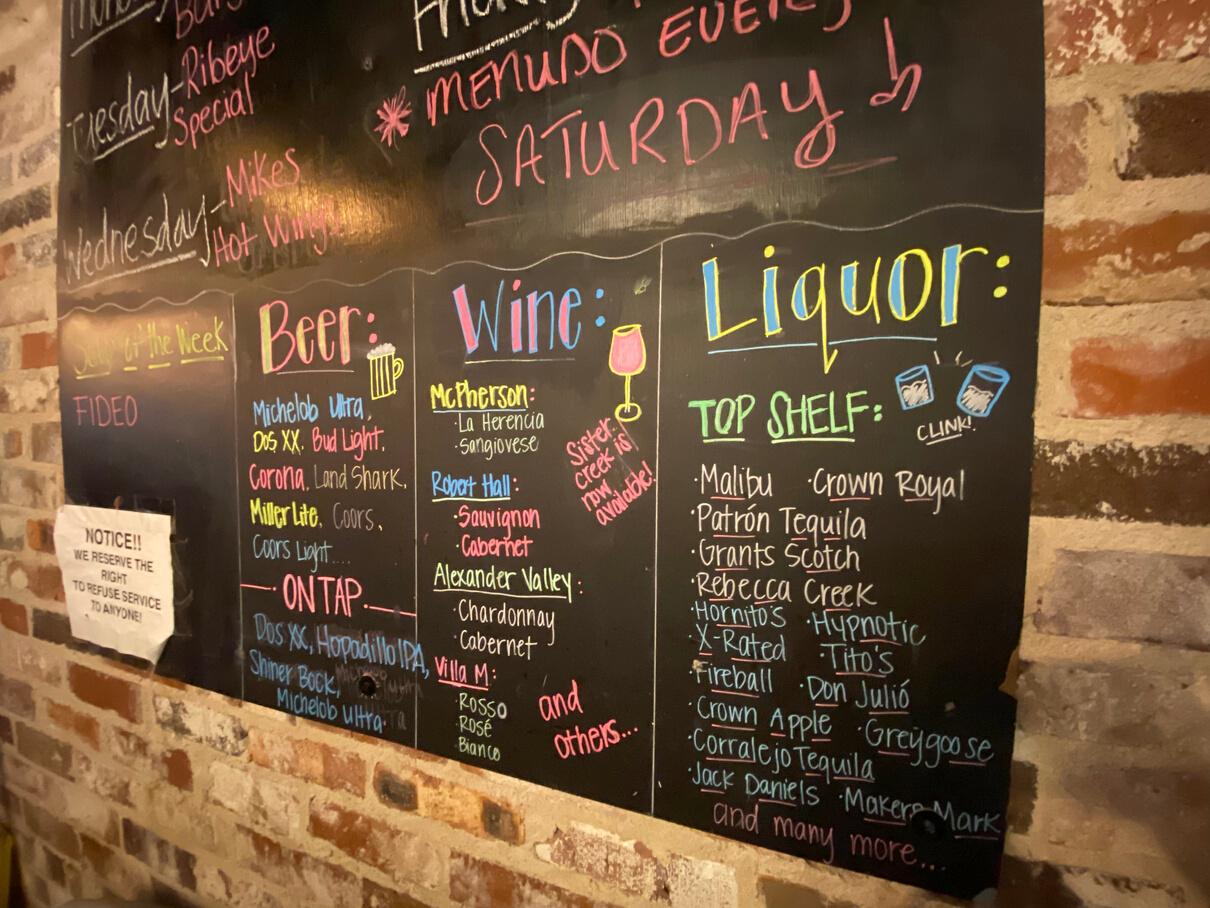 Monday
Tuesday - Ribeye
Special
Wednesday - Mikes
Hot Wings!
Friday
* MENUDO EVERY
SATURDAY
of the Week
FIDEO
NOTICE!!
WE RESERVE THE
RIGHT
TO REFUSE SERVICE
TO ANYONE!
Beer:
Michelob Ultra,
Dos XX, Bud Light,
Corona, Land Shark,
Miller Lite, Coors,
Coors Light....
ON TAP
Dos XX, Hopadillo IPA,
Shiner Bock,
Michelob Ultra
Wine:
McPherson:
·La Herencia
·Sangiovese
Sister
creek is
now
available!
Robert Hall:
·Sauvignon
·Cabernet
Alexander Valley:
·Chardonnay
·Cabernet
Villa M:
·Rosso
·Rosé
·Bianco
and
others...
Liquor:
TOP SHELF:
CLINK!
·Malibu ·Crown Royal
·Patrón Tequila
·Grants Scotch
·Rebecca Creek
·Hornito's ·Hypnotic
·X-Rated ·Tito's
·Fireball ·Don Julió
·Crown Apple ·Greygoose
·Corralejo Tequila
·Jack Daniels ·Makers Mark
and many more...